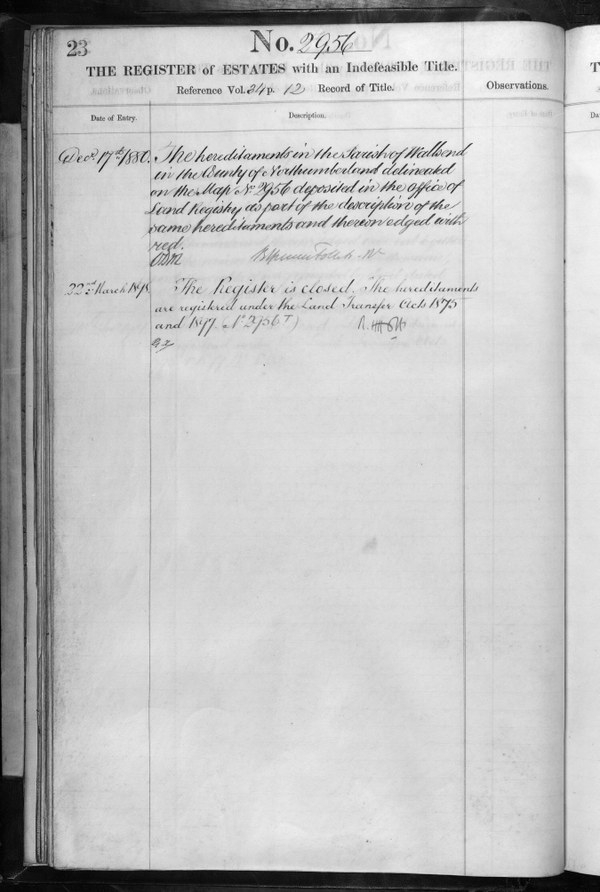 23
No. 2956
THE REGISTER of ESTATES with an Indefeasible Title.
Reference Vol. 24 p. 12 Record of Title.
Observations.
Date of Entry.
Description.
Decr. 17th 1880.
The hereditaments in the Parish of Wallsend
in the County of Northumberland delineated
on the Map No. 2956 deposited in the office of
Land Registry as part of the description of the
same hereditaments and thereon edged with
red.
22nd March
The Register is closed. The hereditaments
are registered under the Land Transfer Acts 1875
and 1897. No. 2956